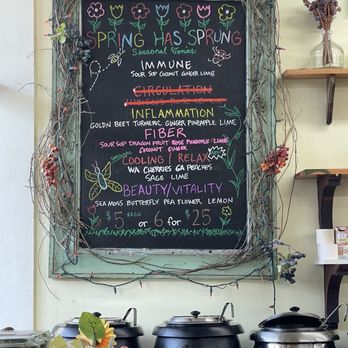 SPRING HAS SPRUNG
Seasonal Tonics
IMMUNE
SOUR SOP COCONUT GINGER LIME
CIRCULATION
HIBISCUS ROSE LEMON
INFLAMMATION
GOLDN BEET TURMERIC GINGER PINEAPPLE LIME
FIBER
SOUR SOP DRAGON FRUIT ROSE PINEAPPLE LIME
COCONUT GINGER
COOLING / RELAX
WA CHERRIES GA PEACHES
SAGE LIME
BEAUTY/VITALITY
SEA MOSS BUTTERFLY PEA FLOWER LEMON
$5 EACH OR 6 FOR $25